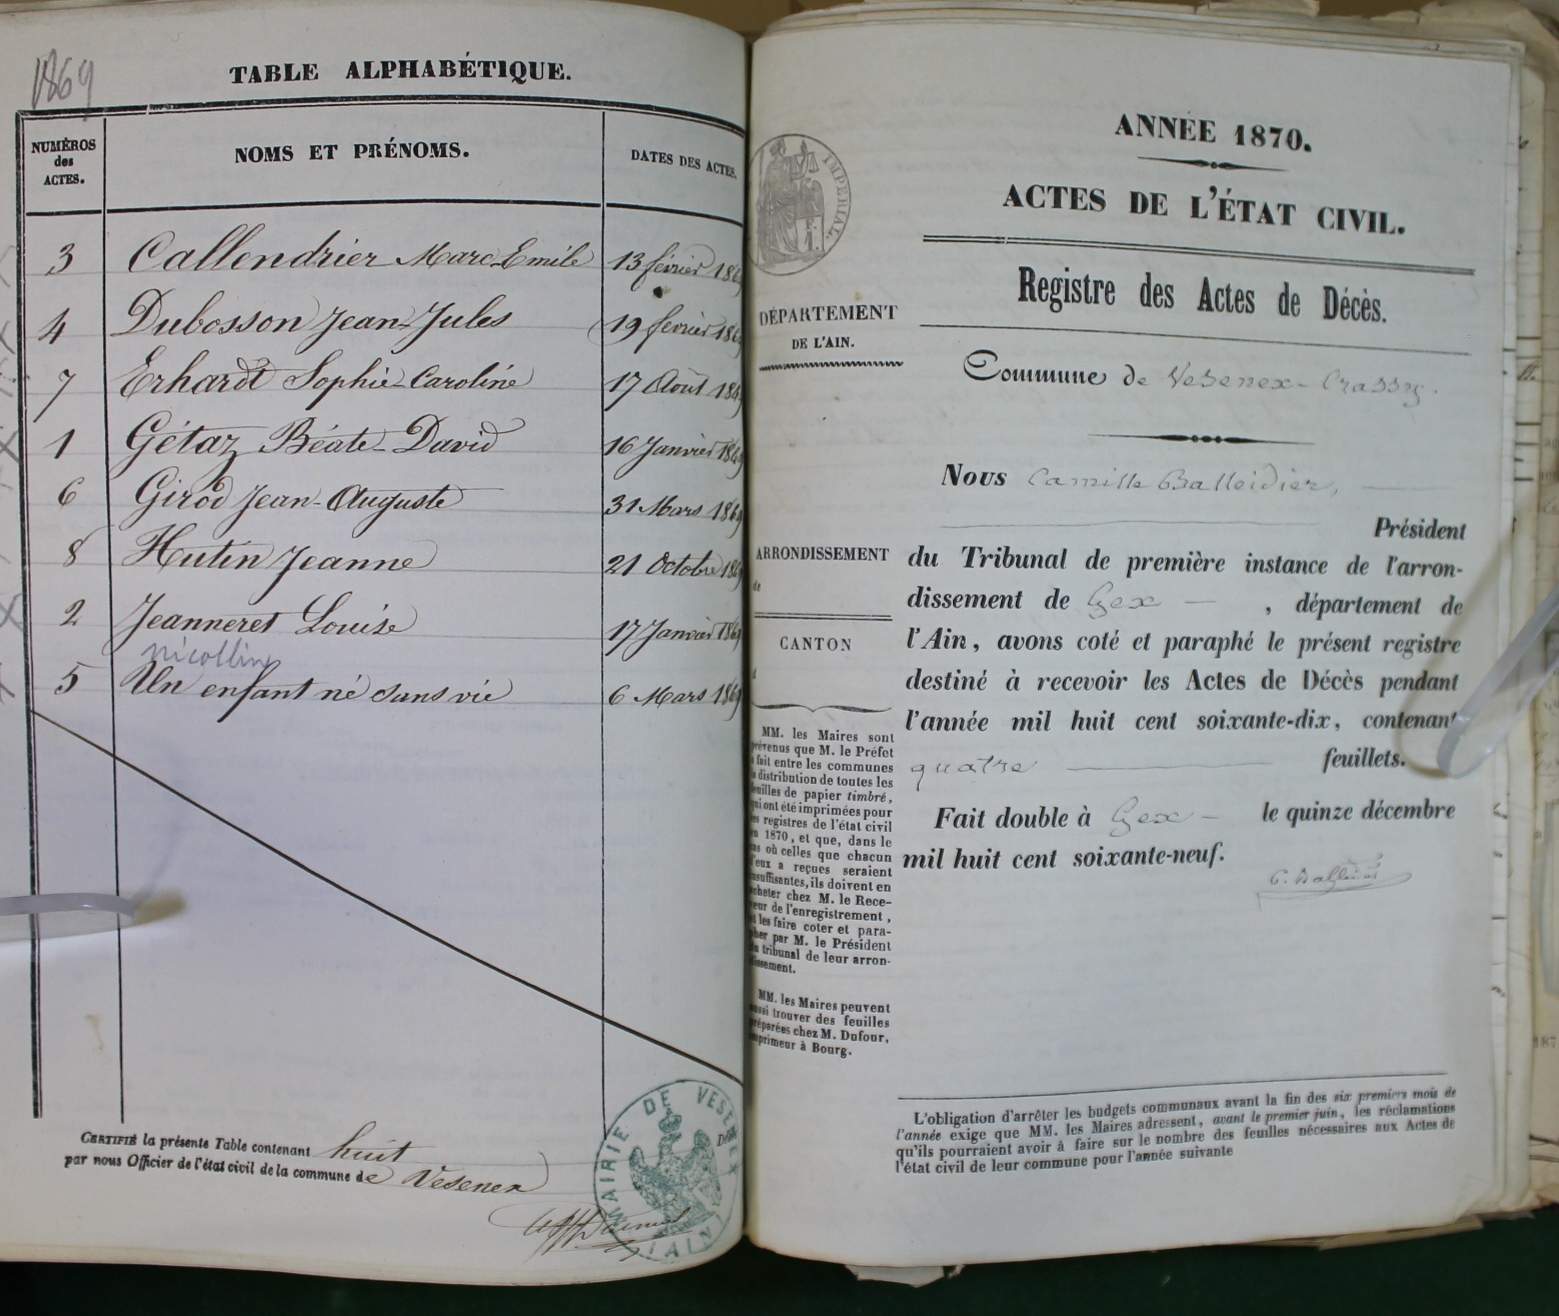 1869
TABLE ALPHABÉTIQUE.
NUMÉROS des ACTES.
NOMS ET PRÉNOMS.
DATES DES ACTES.
3 Callendrier Marc-Emile 13 février 1869
4 Dubosson Jean-Jules 19 fevrier 1869
7 Erhardt Sophie-Caroline 17 Août 1869
1 Gétaz Béate-David 16 Janvier 1869
6 Girod Jean-Auguste 31 Mars 1869
8 Hutin Jeanne 21 Octobre 1869
2 Jeanneret Louise 17 Janvier 1869
nicollin
5 Un enfant né sans vie 6 Mars 1869
CERTIFIÉ la présente Table contenant huit
par nous Officier de l'état civil de la commune de Vesenex
MAIRIE DE VESENEX
(AIN)
IMPÉRIAL.
ANNÉE 1870.
ACTES DE L'ÉTAT CIVIL.
Registre des Actes de Décès.
DÉPARTEMENT
DE L'AIN.
Commune de Vesenex-Crassy.
Nous Camille Balleidier,
Président
ARRONDISSEMENT
de
CANTON
d
du Tribunal de première instance de l'arron-
dissement de Gex, département de
l'Ain, avons coté et paraphé le présent registre
destiné à recevoir les Actes de Décès pendant
l'année mil huit cent soixante-dix, contenant
quatre feuillets.
Fait double à Gex le quinze décembre
mil huit cent soixante-neuf.
MM. les Maires sont
prévenus que M. le Préfet
a fait entre les communes
la distribution de toutes les
feuilles de papier timbré,
qui ont été imprimées pour
les registres de l'état civil
en 1870, et que, dans le
cas où celles que chacun
d'eux a reçues seraient
insuffisantes, ils doivent en
acheter chez M. le Rece-
veur de l'enregistrement,
et les faire coter et para-
pher par M. le Président
du tribunal de leur arron-
dissement.
MM. les Maires peuvent
aussi trouver des feuilles
préparées chez M. Dufour,
imprimeur à Bourg.
L'obligation d'arrêter les budgets communaux avant la fin des six premiers mois de
l'année exige que MM. les Maires adressent, avant le premier juin, les réclamations
qu'ils pourraient avoir à faire sur le nombre des feuilles nécessaires aux Actes de
l'état civil de leur commune pour l'année suivante